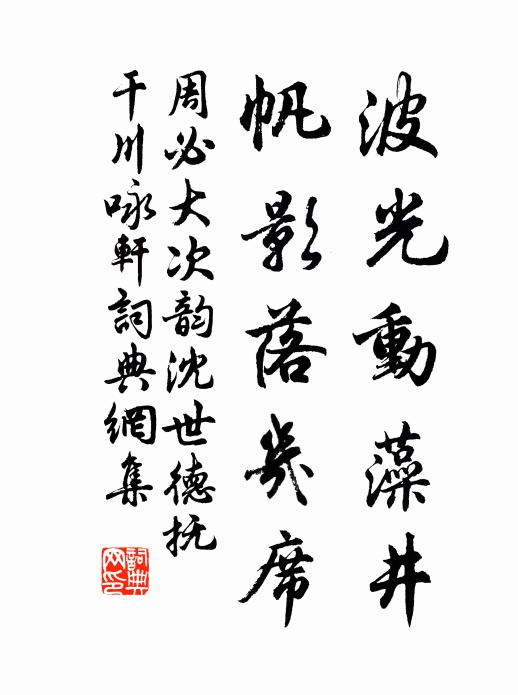 波光動藻井
帆影落几席
周必大次韵沈世德抚
干川咏軒詞典網集
詞典网印